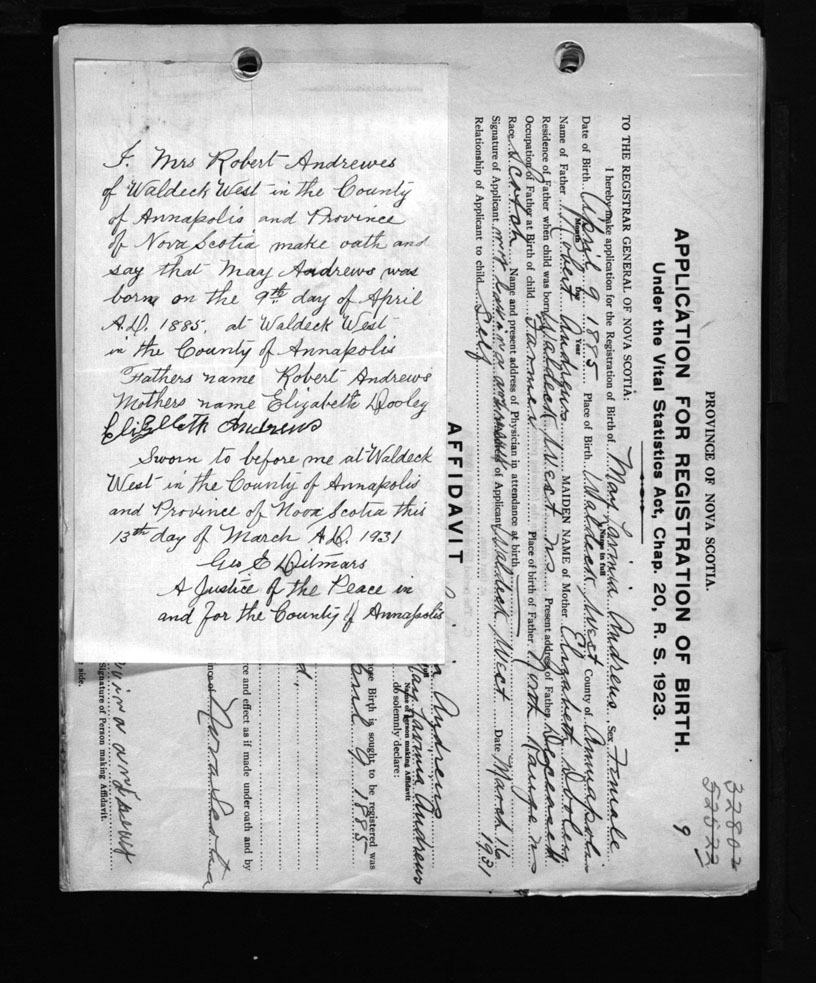 I. Mrs Robert Andrewes
of Waldeck West in the County
of Annapolis and Province
of Nova Scotia make oath and
say that May Andrews was
born on the 9th day of April
A.D. 1885, at Waldeck West
in the County of Annapolis
Fathers name Robert Andrews
Mothers name Elizabeth Dooley
Elizebeth Andrews
Sworn to before me at Waldeck
West in the County of Annapolis
and Province of Nova Scotia this
13th day of March A.D. 1931
Geo E Ditmars
A Justice of the Peace in
and for the County of Annapolis
32802
52522
9
PROVINCE OF NOVA SCOTIA.
APPLICATION FOR REGISTRATION OF BIRTH.
Under the Vital Statistics Act, Chap. 20, R. S. 1923.
TO THE REGISTRAR GENERAL OF NOVA SCOTIA:
I hereby make application for the Registration of Birth of May Lavinia Andrews, Sex Female
Name in full
Date of Birth April 9 1885 Place of Birth Waldeck West County of Annapolis
Month Day Year
Name of Father Robert Andrews MAIDEN NAME of Mother Elizabeth Dooley
Residence of Father when child was born Waldeck West N.S. Present address of Father Deceased
Occupation of Father at Birth of child Farmer Place of birth of Father North Range N.S
Race Scotch Name and present address of Physician in attendance at birth
Signature of Applicant May Lavinia Andrews of Applicant Waldeck West Date March 16 1931
Relationship of Applicant to child Self
AFFIDAVIT
Andrews
May Lavinia Andrews
Name of Person making Affidavit
do solemnly declare:
ose Birth is sought to be registered was
April 9 1885
d,
rce and effect as if made under oath and by
nce of Nova Scotia
Lavinia Andrews
Signature of Person making Affidavit.
side.